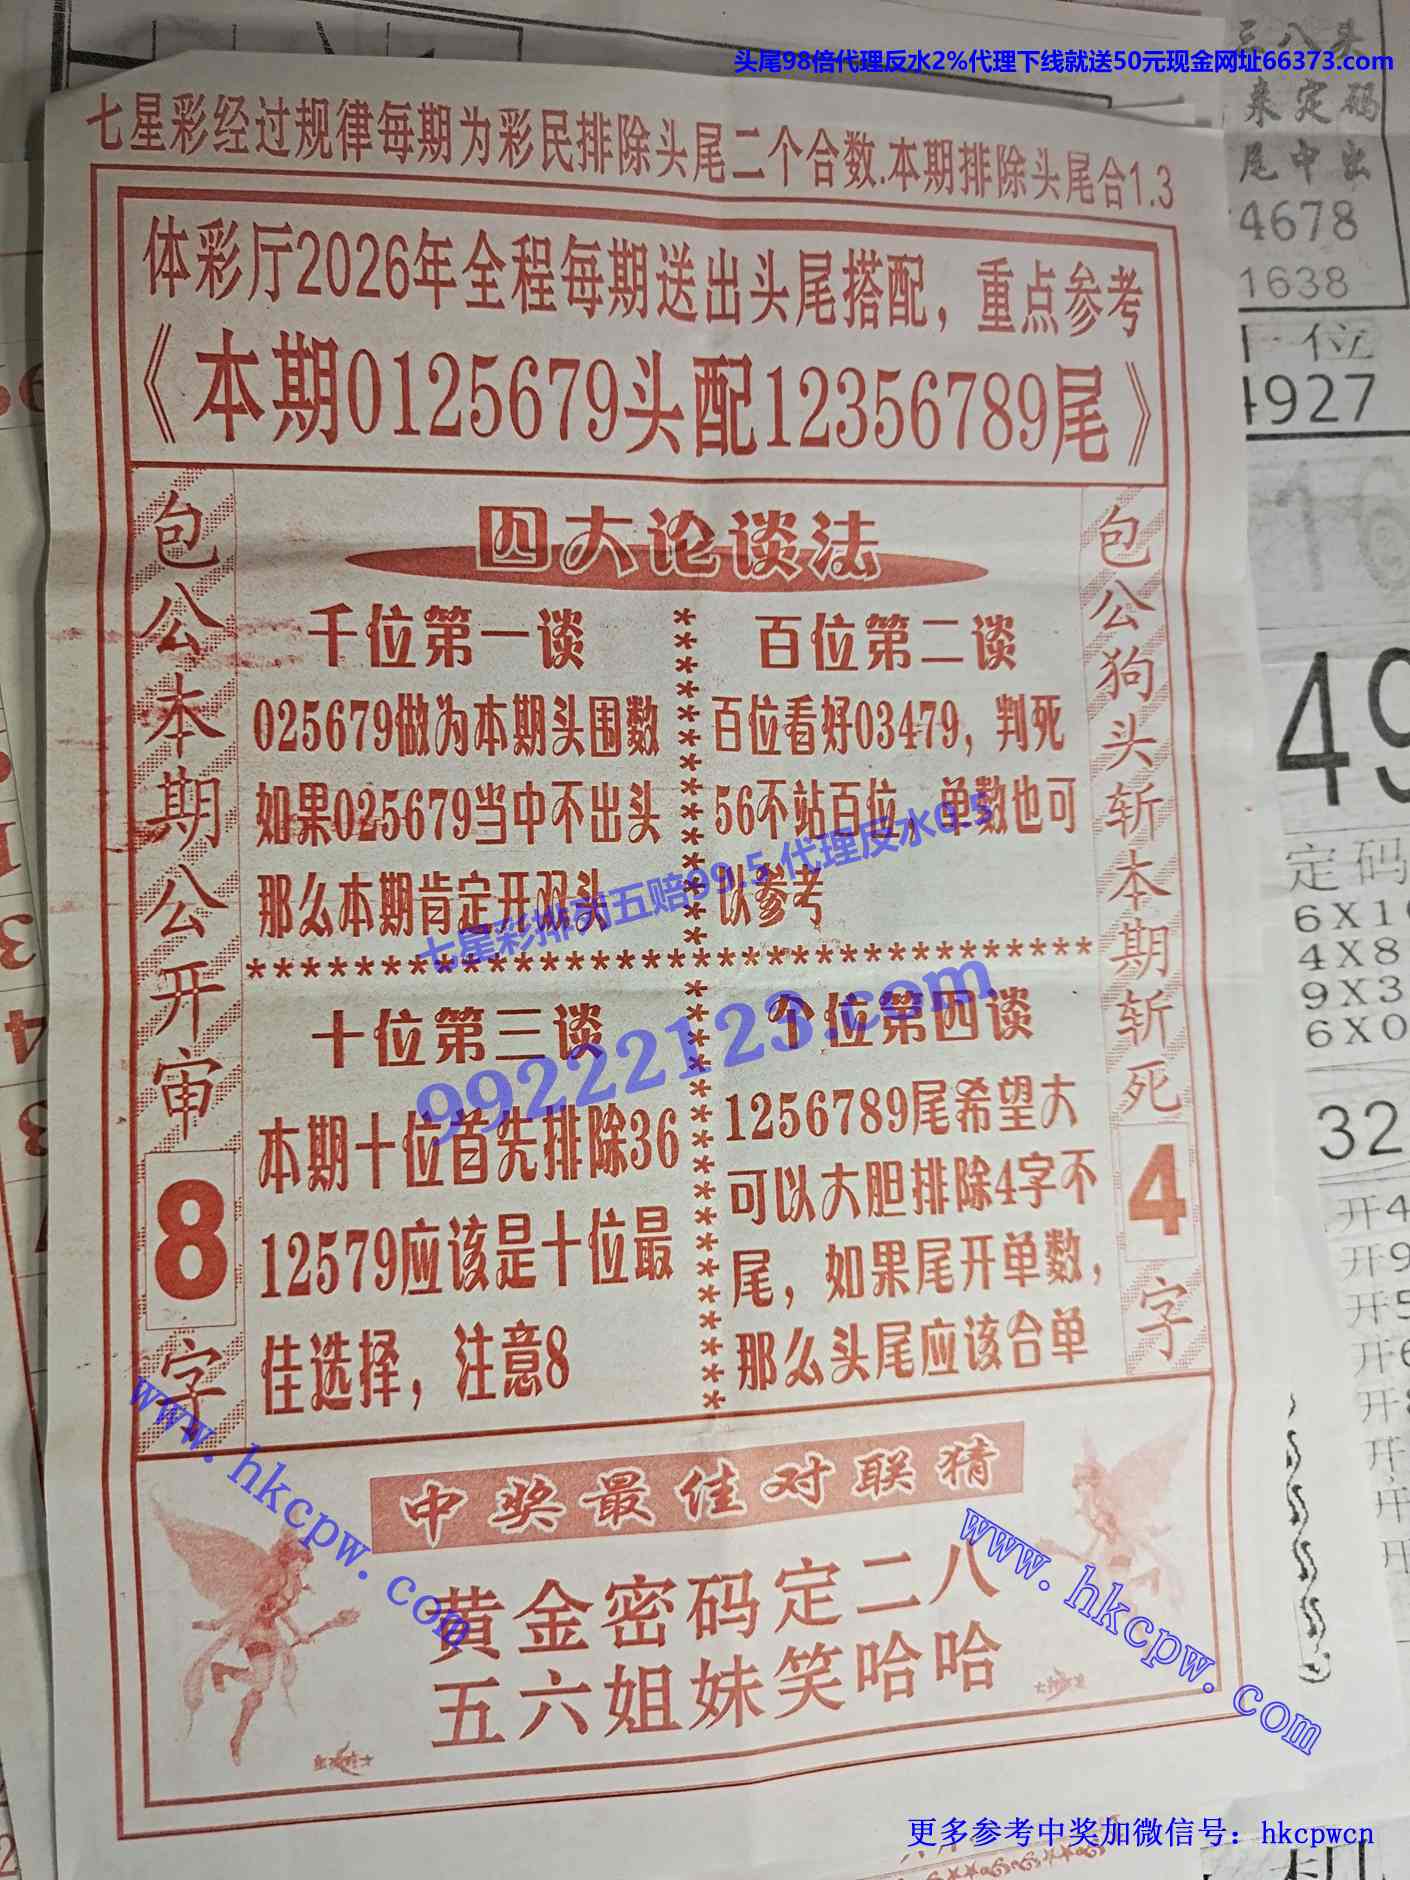 头尾98倍代理反水2%代理下线就送50元现金网址66373.com
七星彩经过规律每期为彩民排除头尾二个合数.本期排除头尾合1.3
体彩厅2026年全程每期送出头尾搭配，重点参考
《本期0125679头配12356789尾》
包公本期公开审8字
四大论谈法
千位第一谈
025679做为本期头围数
如果025679当中不出头
那么本期肯定开双头
百位第二谈
百位看好03479，判死
56不站百位，单数也可
以参考
十位第三谈
本期十位首先排除36
12579应该是十位最
佳选择，注意8
个位第四谈
1256789尾希望大
可以大胆排除4字不
尾，如果尾开单数，
那么头尾应该合单
包公狗头斩本期斩死4字
七星彩排列五赔99.5 代理反水0.5
99222123.com
中奖最佳对联猜
黄金密码定二八
五六姐妹笑哈哈
www.hkcpw.com
www.hkcpw.com
三八头
来定码
尾中出
4678
1638
位
4927
16
49
定码
6X1
4X8
9X3
6X0
32
开4
开9
开5
开6
开8
开
更多参考中奖加微信号：hkcpwcn